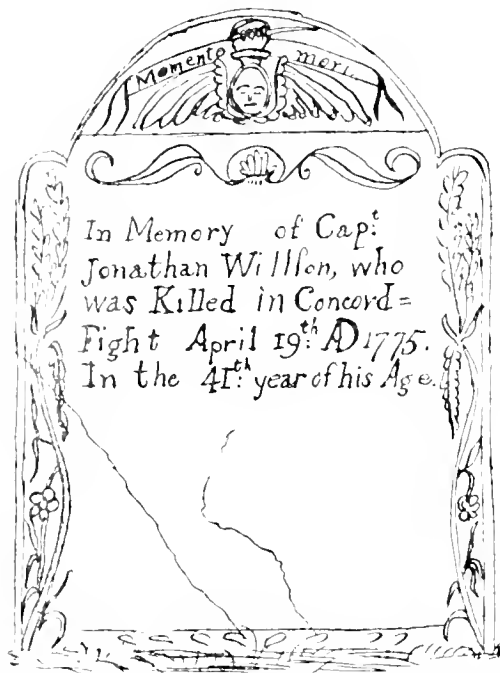 Momento mori.
In Memory of Capt.
Jonathan Willson, who
was Killed in Concord=
Fight April 19th. AD 1775.
In the 41th. year of his Age.